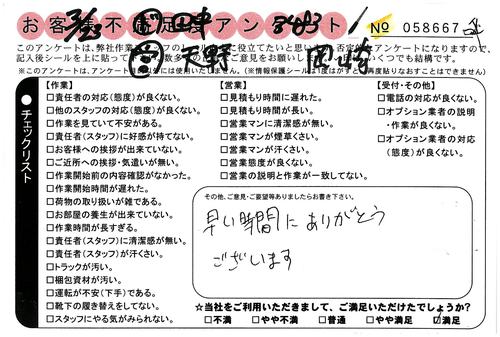 3/23 営 田中 8483
お客様不満足度アンケート! No 058667
作 天野 岡崎
このアンケートは、弊社作業
に役立てたいと思い
否定的なアンケートになりますので、
記入後シールを上に貼って
ご意見をお願いい
いくつでも結構です。
※このアンケートは、アンケート
に使用いたしません。(※情報保護シールは1度はがすと再度貼りなおすことはできません)
チェックリスト
【作業】
□責任者の対応(態度)が良くない。
□他のスタッフの対応(態度)が良くない。
□作業を見ていて不安がある。
□責任者(スタッフ)に好感が持てない。
□お客様への挨拶が出来ていない。
□ご近所への挨拶・気遣いが無い。
□作業開始前の内容確認がなかった。
□作業開始時間が遅れた。
□荷物の取り扱いが雑である。
□お部屋の養生が出来ていない。
□作業時間が長すぎる。
□責任者(スタッフ)に清潔感が無い。
□責任者(スタッフ)が汗くさい。
□トラックが汚い。
□梱包資材が汚い。
□運転が不安(下手)である。
□靴下の履き替えをしてない。
□スタッフにやる気がみられない。
【営業】
□見積もり時間に遅れた。
□見積もり時間が長い。
□営業マンに清潔感が無い。
□営業マンが煙草くさい。
□営業マンが汗くさい。
□営業態度が良くない。
□営業の説明と作業が一致してない。
【受付・その他】
□電話の対応が良くない。
□オプション業者の説明
・作業が良くない。
□オプション業者の対応
(態度)が良くない。
その他、ご意見・ご要望等ありましたらお書き下さい。
早い時間に ありがとう
ございます
☆当社をご利用いただきまして、ご満足いただけたでしょうか?
□不満 □やや不満 □普通 □やや満足 ☑満足